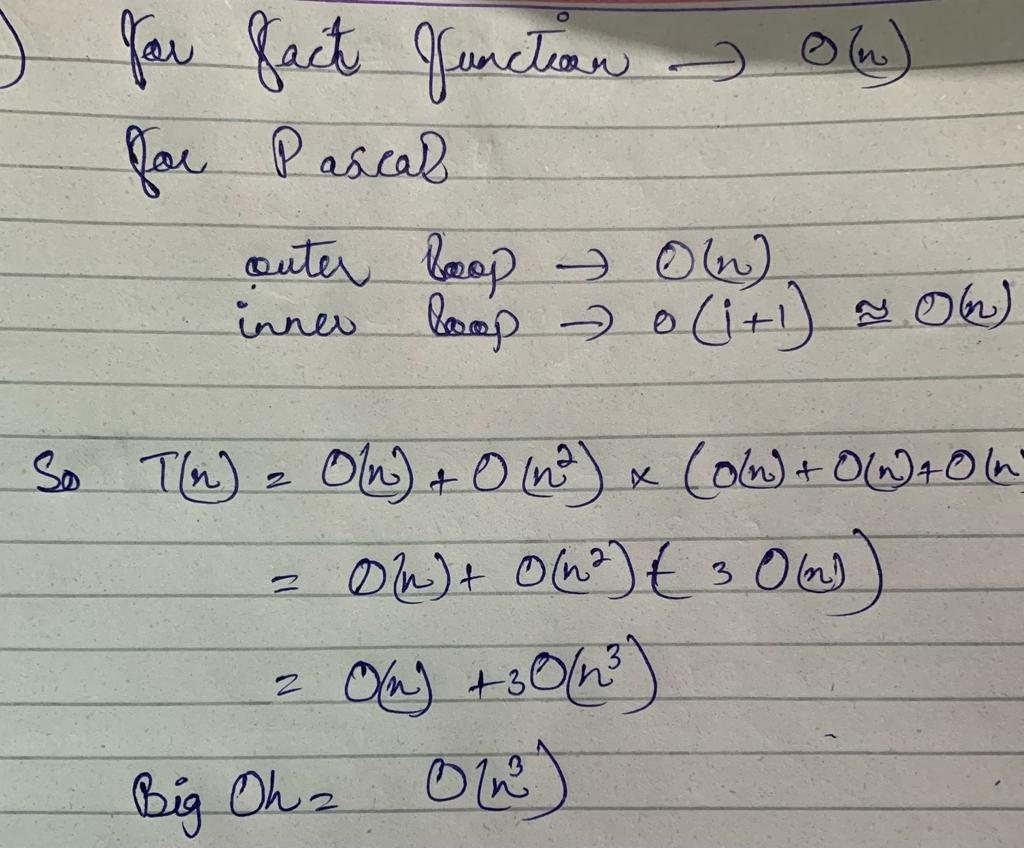 ) for fact function → O(n)
for Pascal
outer loop → O(n)
inner loop → O(i+1) ≅ O(n)
So T(n) = O(n) + O(n²) × (O(n) + O(n) + O(n)
= O(n) + O(n²) ( 3 O(n))
= O(n) + 3O(n³)
Big Oh = O(n³)